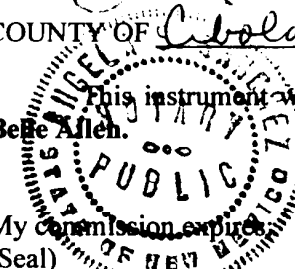 COUNTY OF Cibola
This instrument w
Belle Allen.
My commission expires
(Seal)
ANGEL
NOTARY
PUBLIC
STATE OF NEW MEXICO